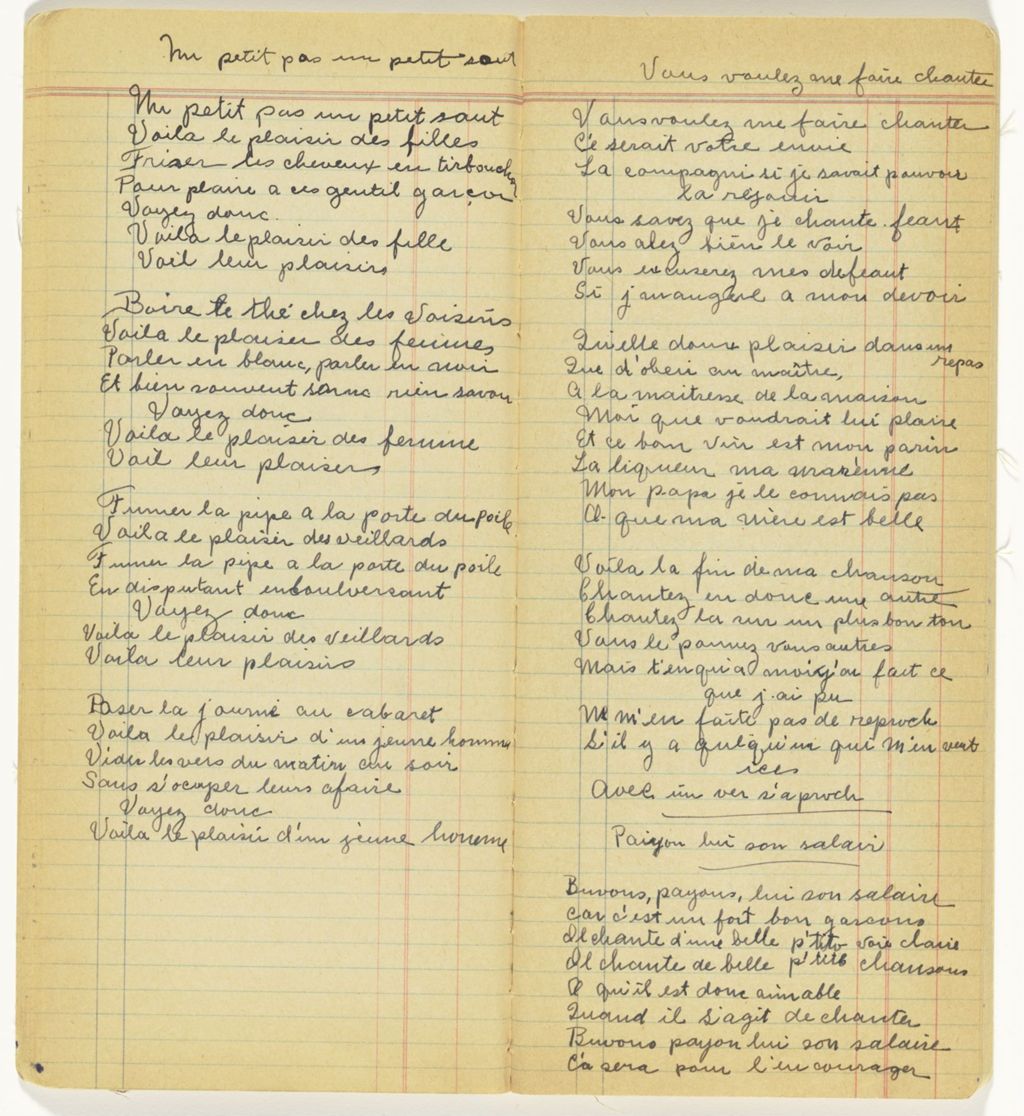 Un petit pas un petit saut
Un petit pas un petit saut
Voila le plaisir des filles
Friser les cheveux en tirbouchon
Pour plaire a ces gentil garçon
Voyez donc.
Voila le plaisir des fille
Voil leur plaisirs
Boire le thé chez les Voisins
Voila le plaisir des femmes
Parler en blanc, parler en noir
Et bien souvent sans rien savoir
Voyez donc
Voila le plaisir des femme
Voil leur plaisers
Fumer la pipe a la porte du poile
Voila le plaisir des veillards
Fumer la pipe a la porte du poile
En disputant enboulversant
Voyez donc
Voila le plaisir des veillards
Voila leur plaisirs
Paser la journé au cabaret
Voila le plaisir d'un jeune homme
Vider les vers du matin au soir
Sans s'ocuper leurs afaire
Voyez donc
Voila le plaisir d'un jeune homme
Vous voulez me faire chanter
Vous voulez me faire chanter
Ce serait votre envie
La compagni si je savait pouvoir
la réjouir
Vous savez que je chante
Vous alez bien le voir
Vous excuserez mes defeaut
Si j'manque a mon devoir
Quelle doux plaisir dans un
repas
Que d'obeir au maître,
A la maitresse de la maison
Moi que voudrait lui plaire
Et ce bon vin est mon parin
La liqueur ma
Mon papa je le connais pas
Ah que ma mère est belle
Voila la fin de ma chanson
Chantez en donc une autre
Chantez la sur un plus bon ton
Vous le pouvez vous autres
Mais t'en qu'a moi j'ai fait ce
que j.ai pu
Ne m'en faite pas de reproch
S'il y a quelqu'un qui m'en veut
ices
Avec un ver s'aproch
Paiyon lui son salair
Buvons, payons, lui son salaire
Car c'est un fort bon gascons
Il chante d'une belle p'tite voie claire
Il chante de belle p'tite chansons
O qu'il est donc aimable
Quand il s'agit de chanter
Buvons payon lui son salaire
Ca sera pour l'encourager